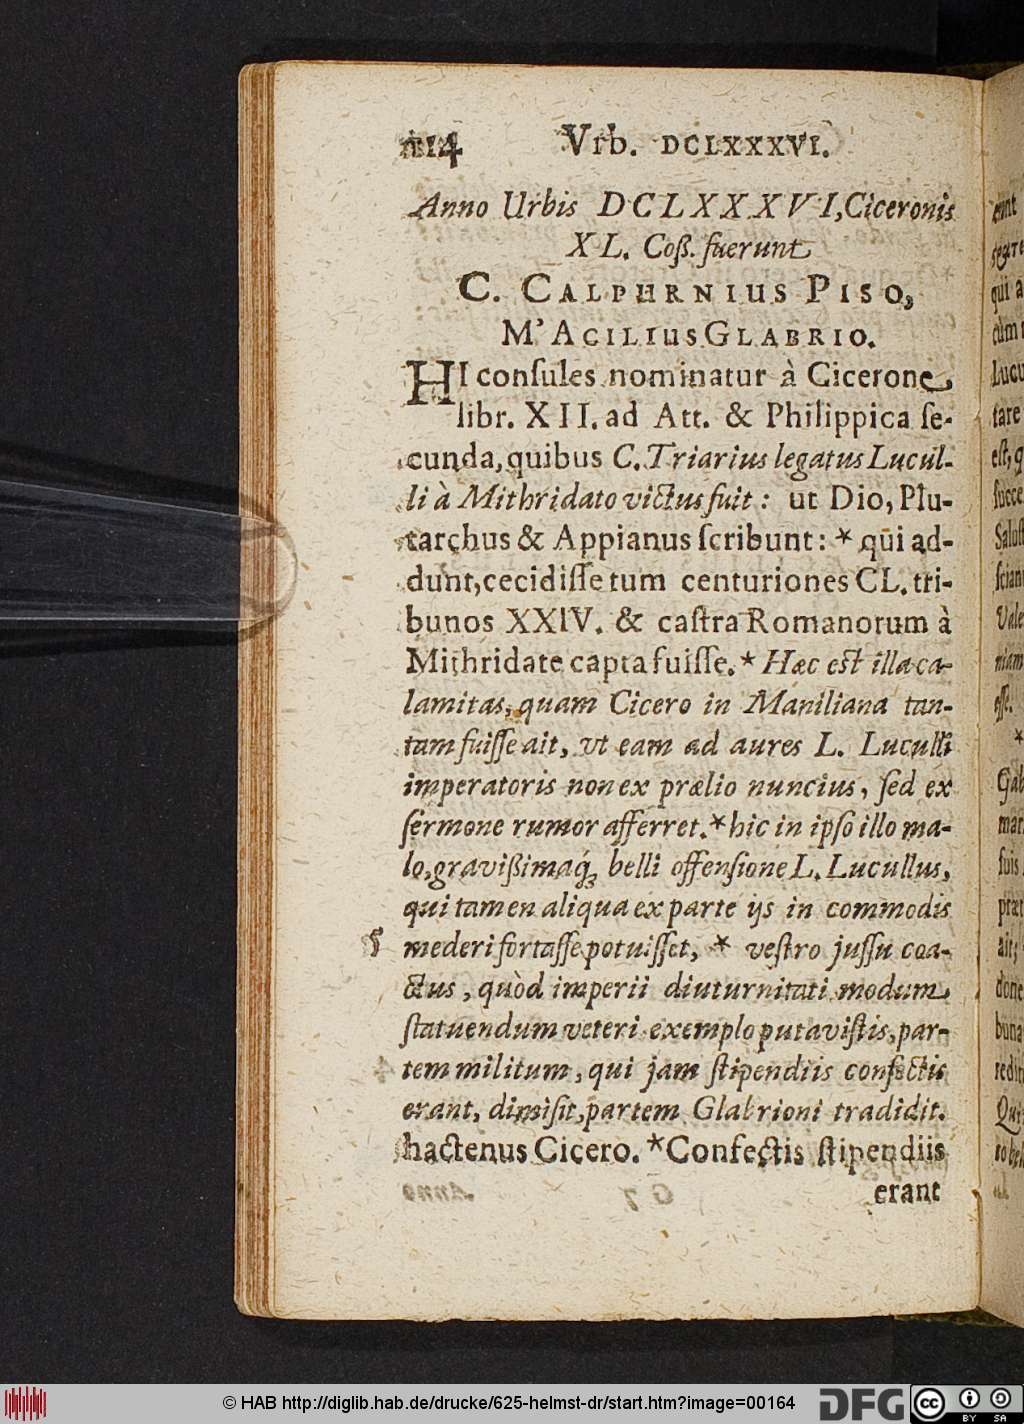 114 Vrb. DCLXXXVI.
Anno Urbis DCLXXXVI, Ciceronis
XL. Coß. fuerunt
C. CALPHRNIUS PISO,
M' ACILIUS GLABRIO.
HI conſules nominatur à Cicerone,
libr. XII. ad Att. & Philippica ſe-
cunda, quibus C. Triarius legatus Lucul-
li à Mithridato victus fuit: ut Dio, Plu-
tarchus & Appianus ſcribunt: * qui ad-
dunt, cecidiſſe tum centuriones CL. tri-
bunos XXIV. & caſtra Romanorum à
Mithridate capta fuiſſe. * Hæc eſt illa ca-
lamitas, quam Cicero in Maniliana tan-
tam fuiſſe ait, vt eam ad aures L. Luculli
imperatoris non ex prælio nuncius, ſed ex
ſermone rumor afferret. * hic in ipſo illo ma-
lo, gravißimaq́; belli offenſione L. Lucullus,
qui tamen aliqua ex parte ijs in commodis
mederi fortaſſe potuiſſet, * veſtro juſſu coa-
ctus, quòd imperii diuturnitati modum
ſtatuendum veteri exemplo putaviſtis, par-
tem militum, qui jam ſtipendiis confectis
erant, dimiſit, partem Glabrioni tradidit.
hactenus Cicero. * Confectis ſtipendiis
erant
© HAB http://diglib.hab.de/drucke/625-helmst-dr/start.htm?image=00164
DFG
cc BY SA